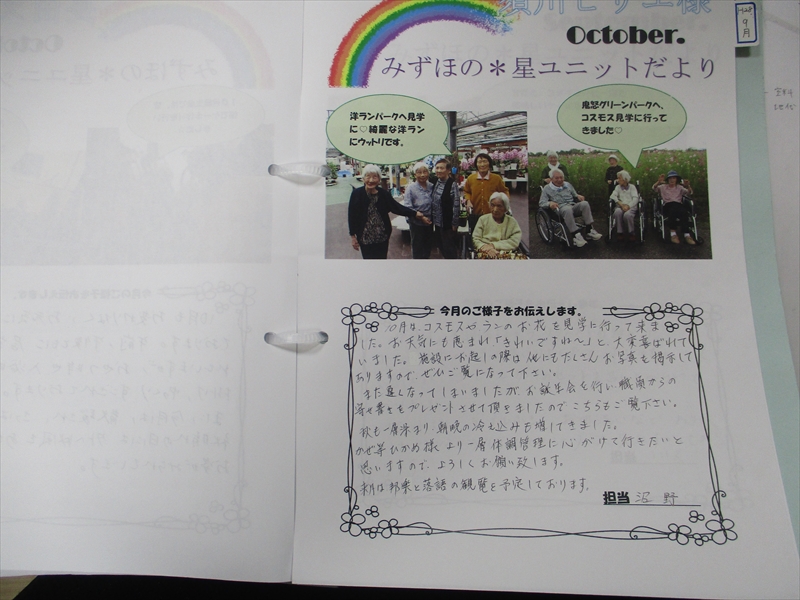 October.
みずほの＊星ユニットだより
9月
洋ランパークへ見学
に♡綺麗な洋ラン
にウットリです。
鬼怒グリーンパークへ、
コスモス見学に行って
きました♡
今月のご様子をお伝えします。
10月は、コスモスやランのお花を見学に行って来ま
した。お天気にも恵まれ「きれいですね〜」と、大変喜ばれて
いました。施設にお越しの際は他にもたくさんお写真を掲示して
おりますので、ぜひご覧になって下さい。
また遅くなってしまいましたが、お誕生会を行い、職員からの
寄せ書きをプレゼントさせて頂きましたのでこちらもご覧下さい。
秋も一層深まり、朝晩の冷え込みも増してきました。
かぜ等ひかぬ様、より一層体調管理に心がけて行きたいと
思いますので、よろしくお願い致します。
来月は邦楽と落語の観覧を予定しております。
担当 沼野